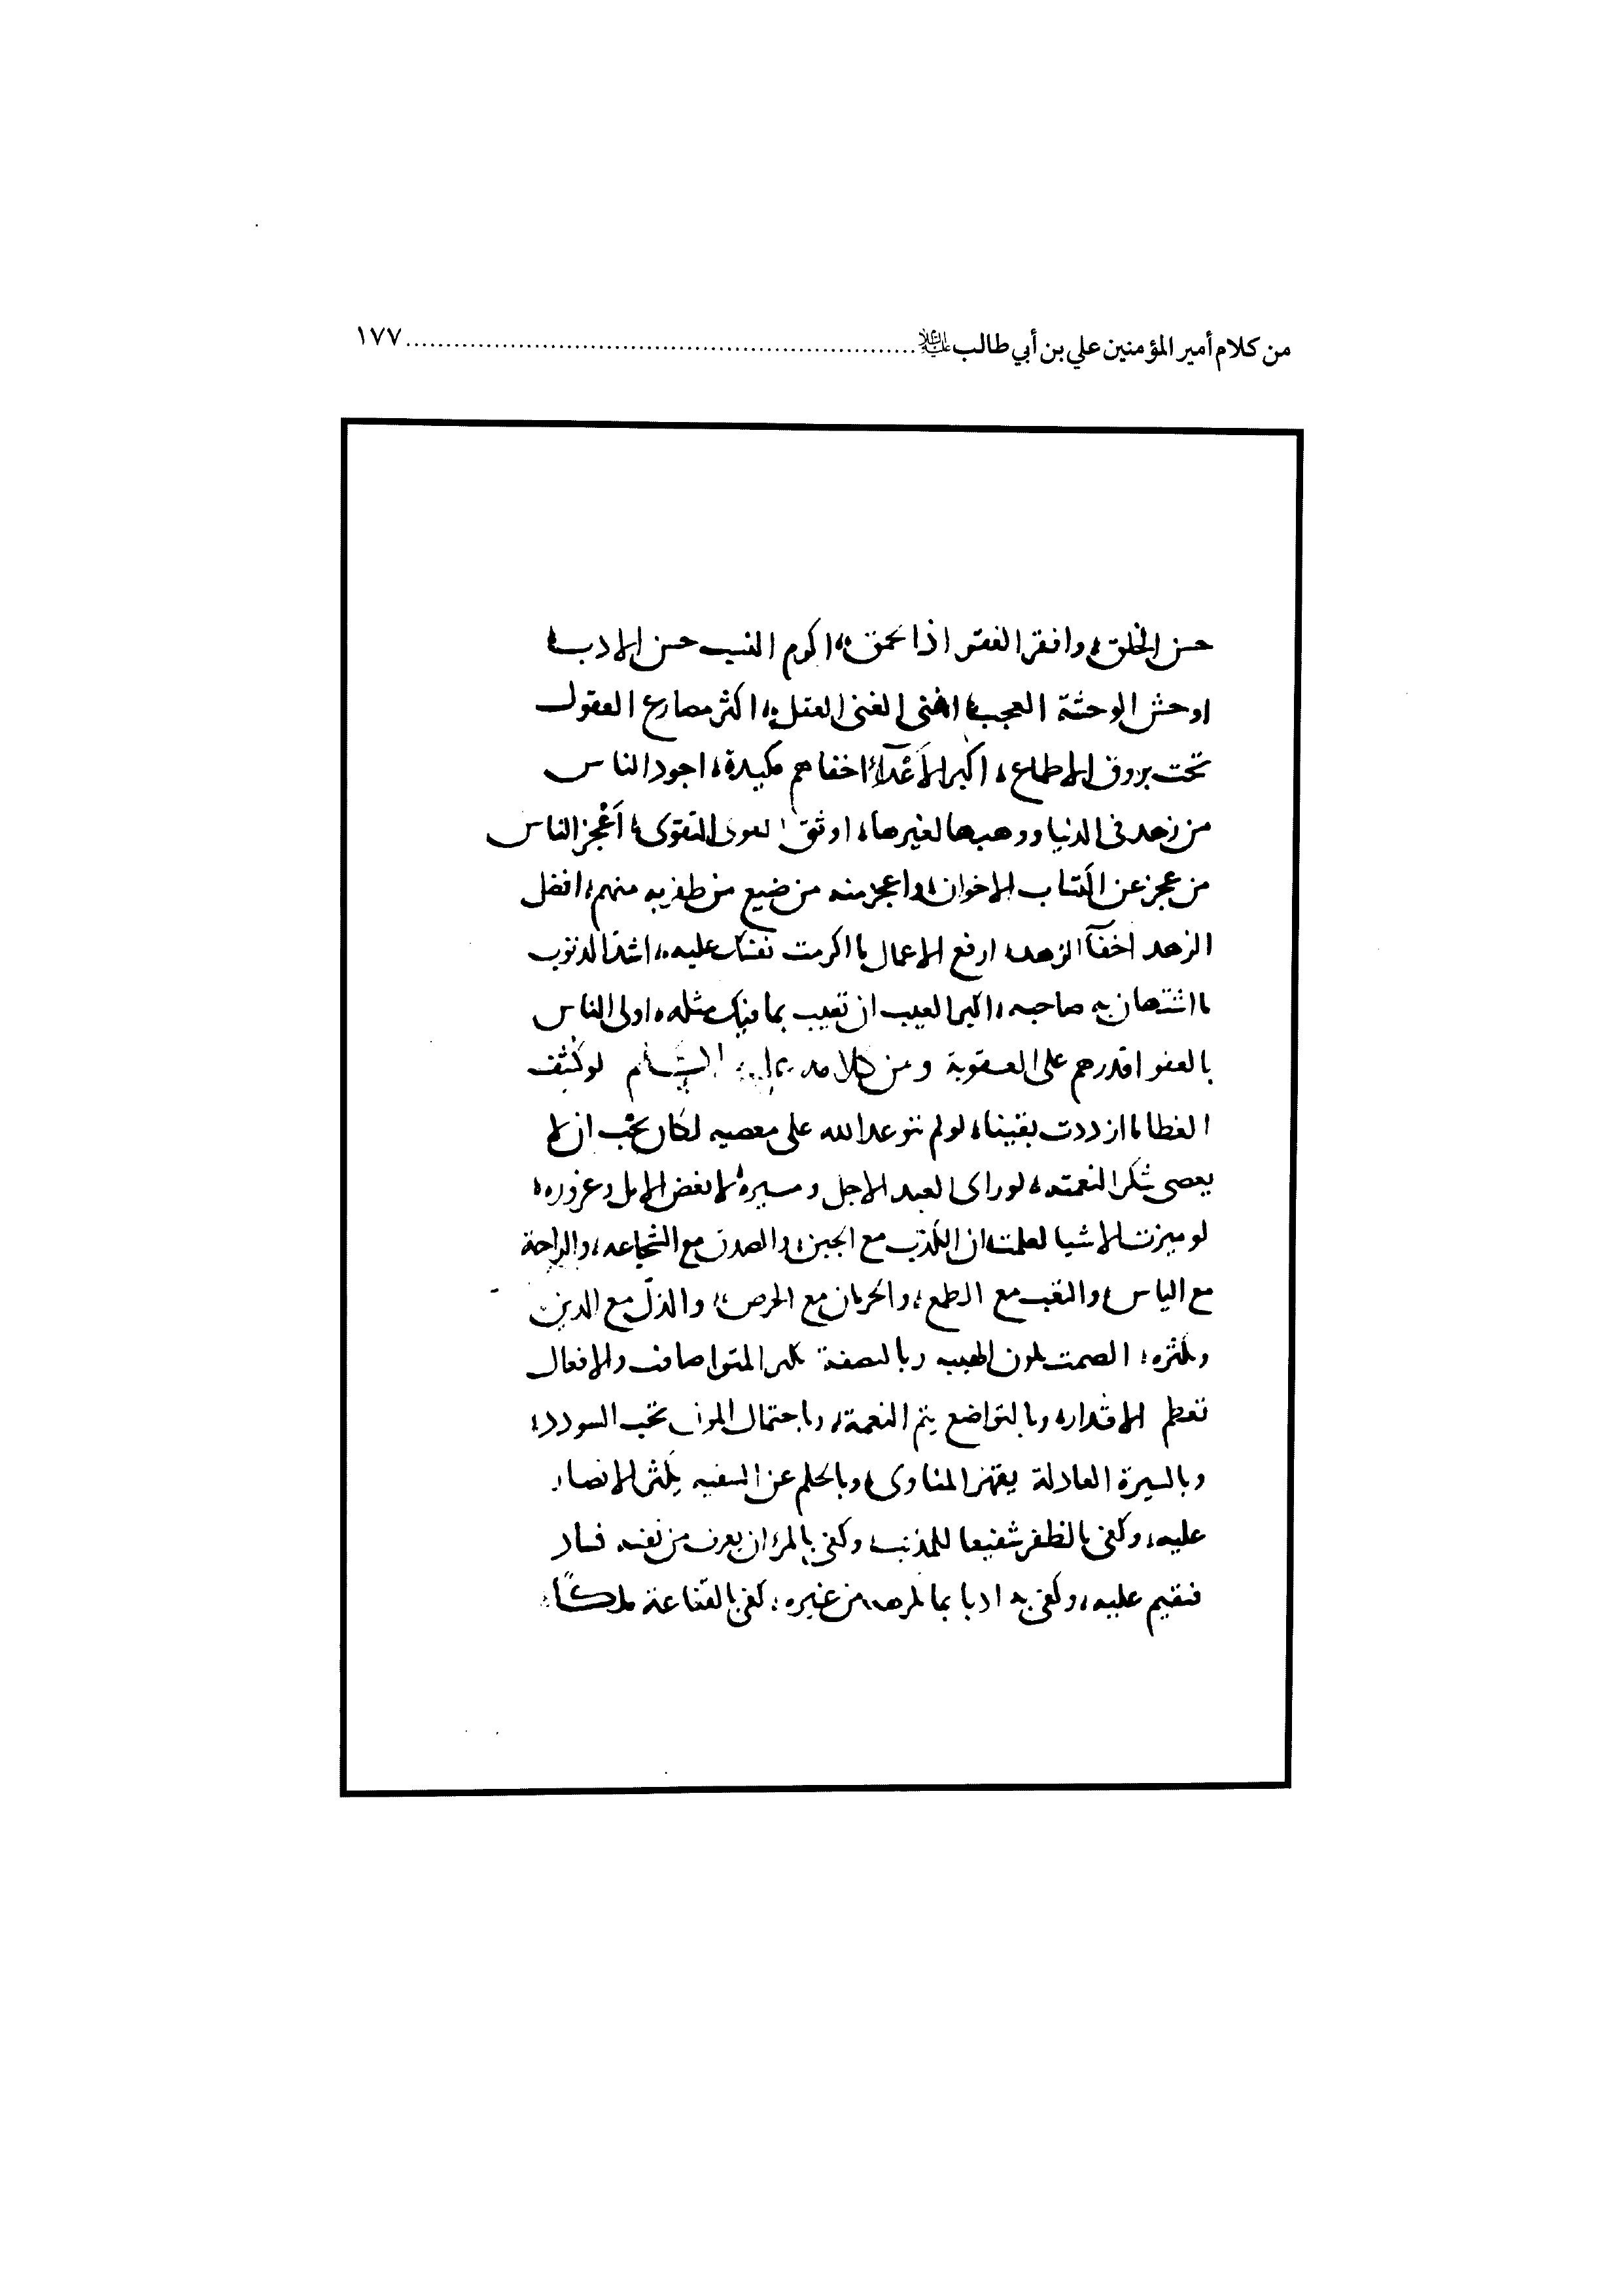 من كلام أمير المؤمنين علي بن أبي طالب عليه السلام ........ ١٧٧
حسن الخلق، وافقر الفقر اذا لحمق، اكرم النسب حسن الادب،
اوحش الوحشة العجب، اغنى الغنى العقل، اكثر مصارع العقول
تحت بروق الاطماع، اكبر الأعْدآء اخفاهم مكيدة، اجود الناس
من زهد فى الدنيا ووهبها لغيرها، اوثق العرى التقوى، أعْجز الناس
من عجز عن اكتساب الاخوان، واعجز منه من ضيع من ظفر به منهم، افضل
الزهد اخفآ الزهد، ارفع الاعمال ما اكرمت نفسك عليه، اشد الذنوب
ما استهان به صاحبه، اكبر العيب ان تعيب بما فيك مثله، اولى الناس
بالعفو اقدرهم على العقوبة ومن كلامه عليه السلام لو كشف
الغطا ما ازددت يقينا، لو لم يتوعد الله على معصيه لكان يجب ان لا
يعصى شكر النعمته، لو راى العبد الاجل ومسيره لابغض الامل وغروره،
لو ميزت الاشيا لعلمت ان الكذب مع الجبن، والصدق مع الشجاعه، والراحة
مع الياس، والتعب مع الطمع، والحرمان مع الحرص، والذلّ مع الدين
وبكثره، الصمت يكون الهيبه وبالنصفة يكثر المتواصلون والافعال
تعظم الاقدار، وبالتواضع يتم النعمة، وباحتمال المؤن يجب السودد،
وبالسيرة العادلة يقهر المناوى، وبالحلم عن السفيه يكثر الانصار
عليه، وكفى بالظفر شفيعا للمذنب، وكفى بالمرء ان يعرف من نفسه فساد
فيقيم عليه، وكفى به ادبا بما يكرهه من غيره، كفى بالقناعة ملكًا،